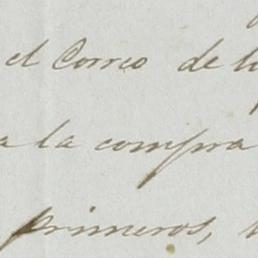 el Correo de
a la compra
primeros,